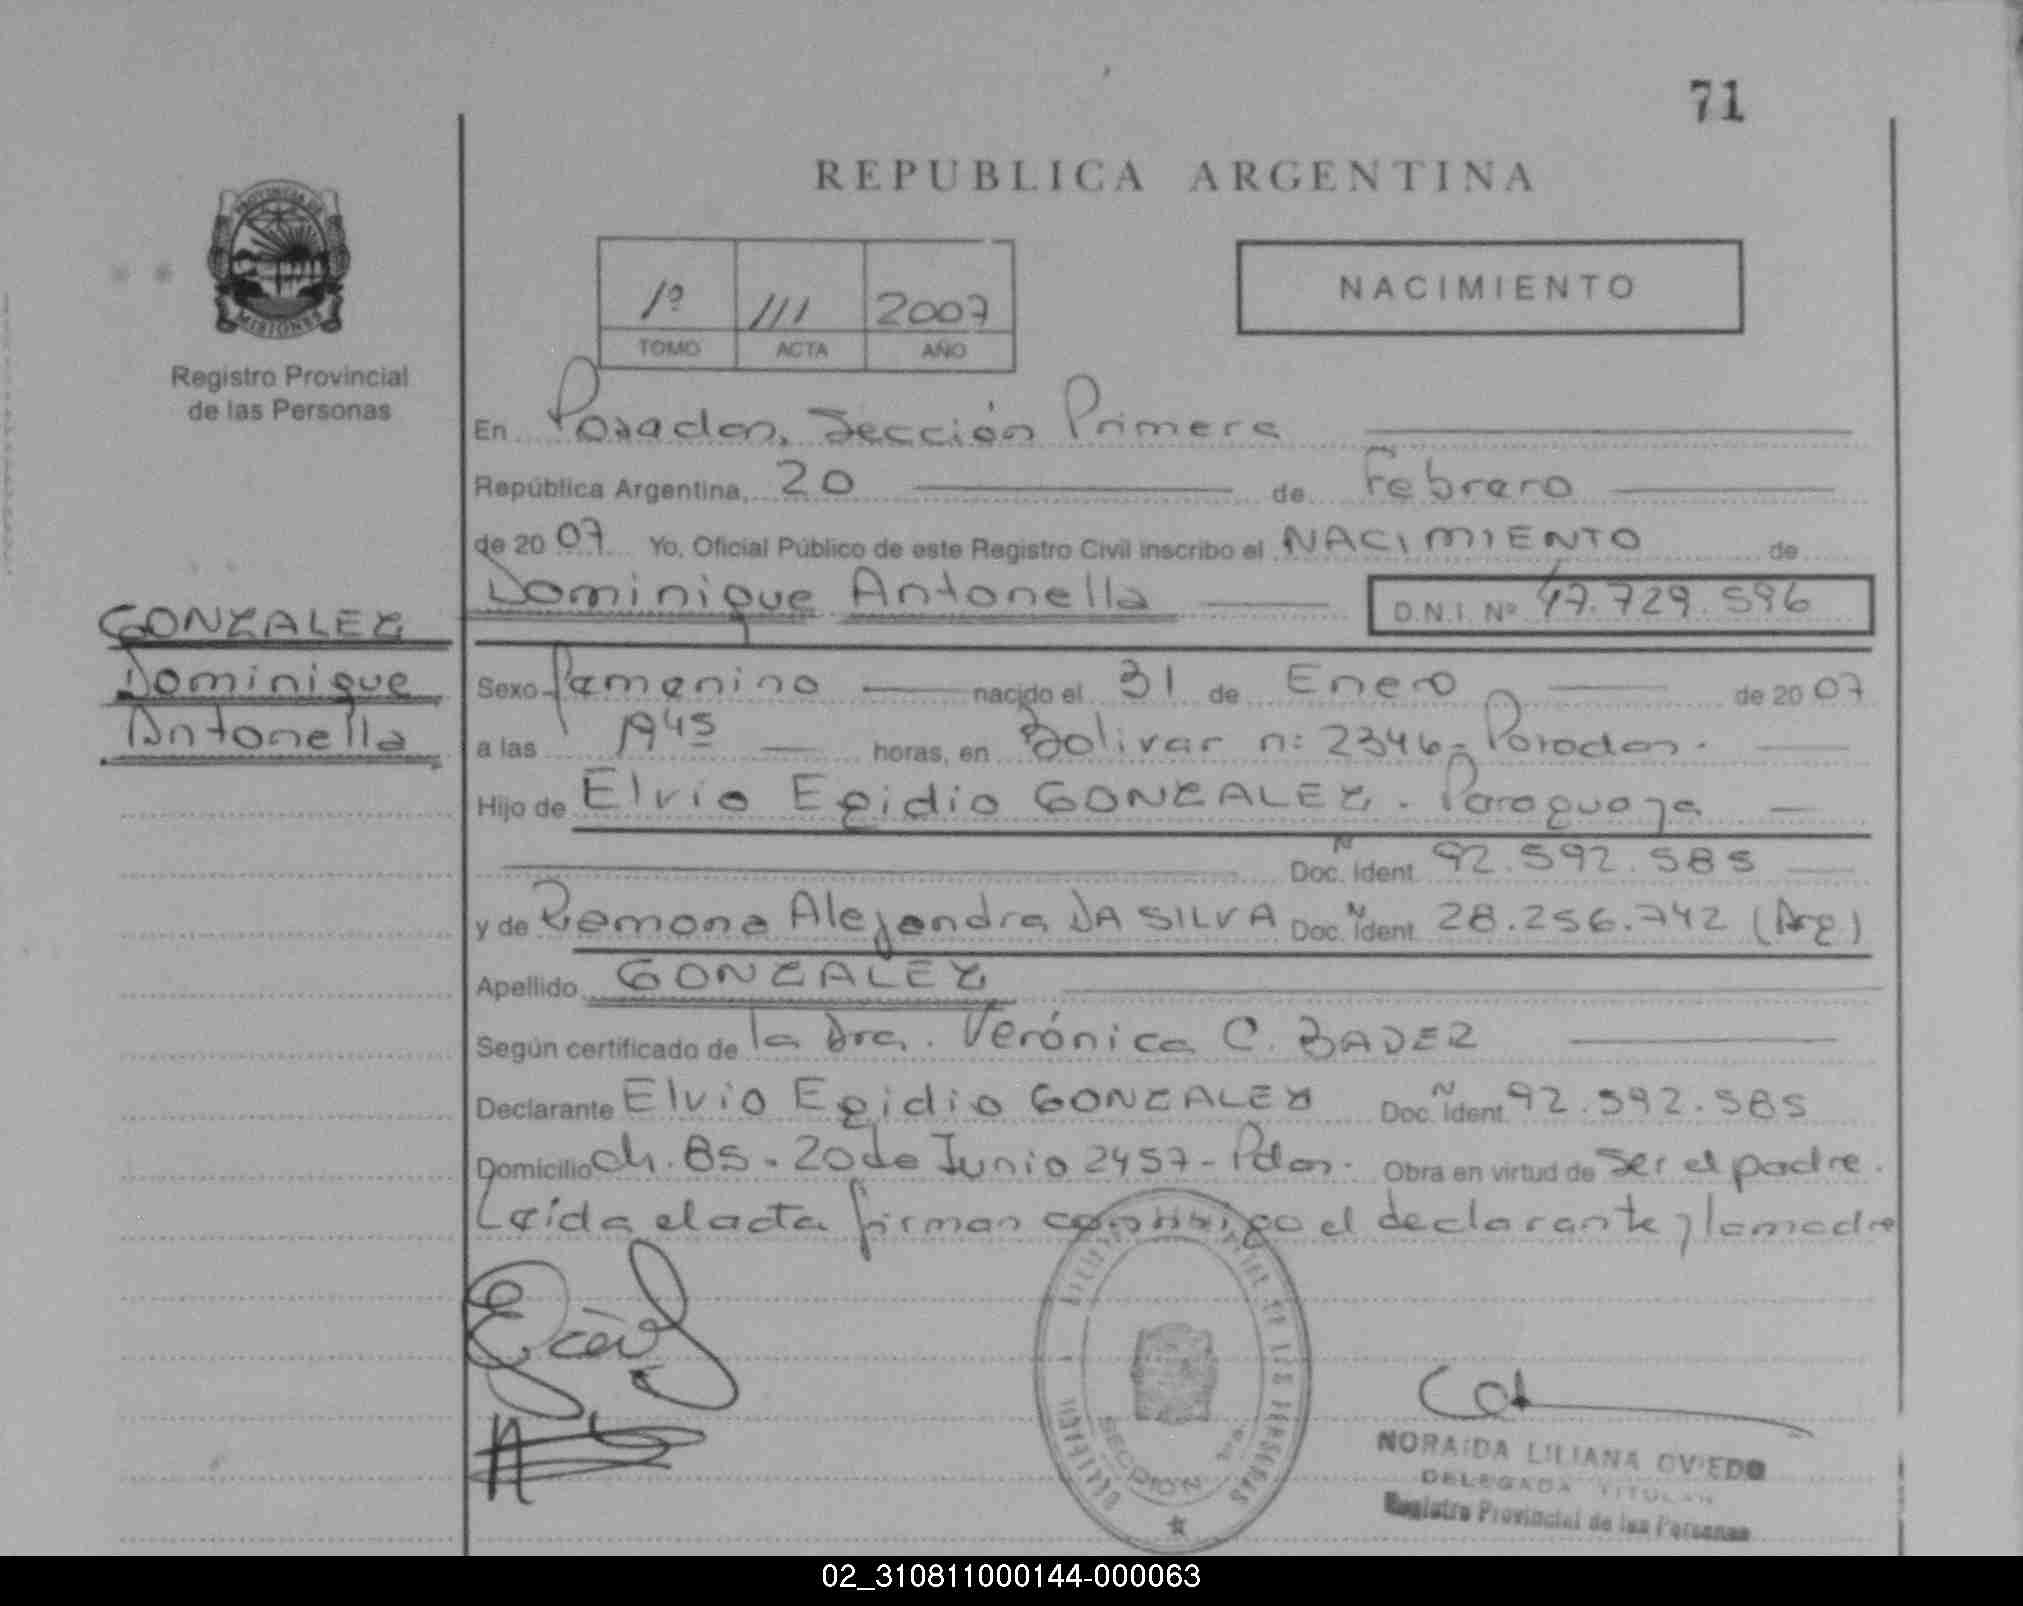 71
REPUBLICA ARGENTINA
PROVINCIA DE
MISIONES
Registro Provincial
de las Personas
1º 111 2007
TOMO ACTA AÑO
NACIMIENTO
En Posadas, Sección Primera
República Argentina, 20 de Febrero
de 2007 Yo, Oficial Público de este Registro Civil inscribo el NACIMIENTO de
Dominique Antonella D.N.I. Nº 47.729.596
GONZALEZ
Dominique
Antonella
Sexo femenino nacido el 31 de Enero de 2007
a las horas, en Bolivar n: 2346- Posadas.
Hijo de Elvio Egidio GONZALEZ. Paraguaya
Doc. Ident. 92.592.585
y de Ramona Alejandra DA SILVA Doc. Ident. 28.256.742 (Arg)
Apellido GONZALEZ
Según certificado de la Dra. Verónica C. BADER
Declarante Elvio Egidio GONZALEZ Doc. Ident. 92.592.585
Domicilio Ch. 85 - 20 de Junio 2457 - Pdas. Obra en virtud de ser el padre.
Leída el acta firman conmigo el declarante y la madre
SECCION 1ra.
NORAIDA LILIANA OVIEDO
DELEGADA TITULAR
Registro Provincial de las Personas
02_310811000144-000063